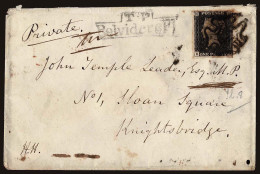 T.P
Belvidere P
Private.
John Temple Leader, Esq. M.P.
No 1, Sloan Square
Knightsbridge.
H.H.